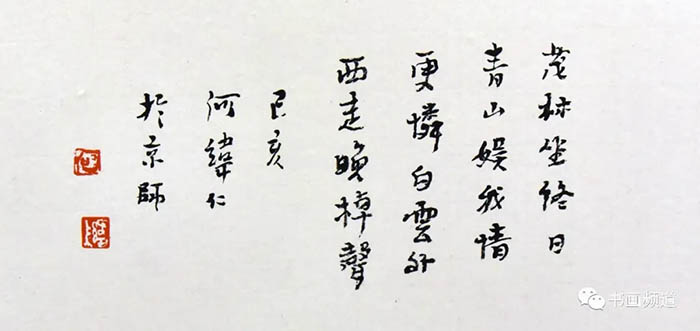 茂林坐終日
青山娛我情
更憐白雲外
西走晚棹聲
己亥
何緯仁
於京師
书画频道